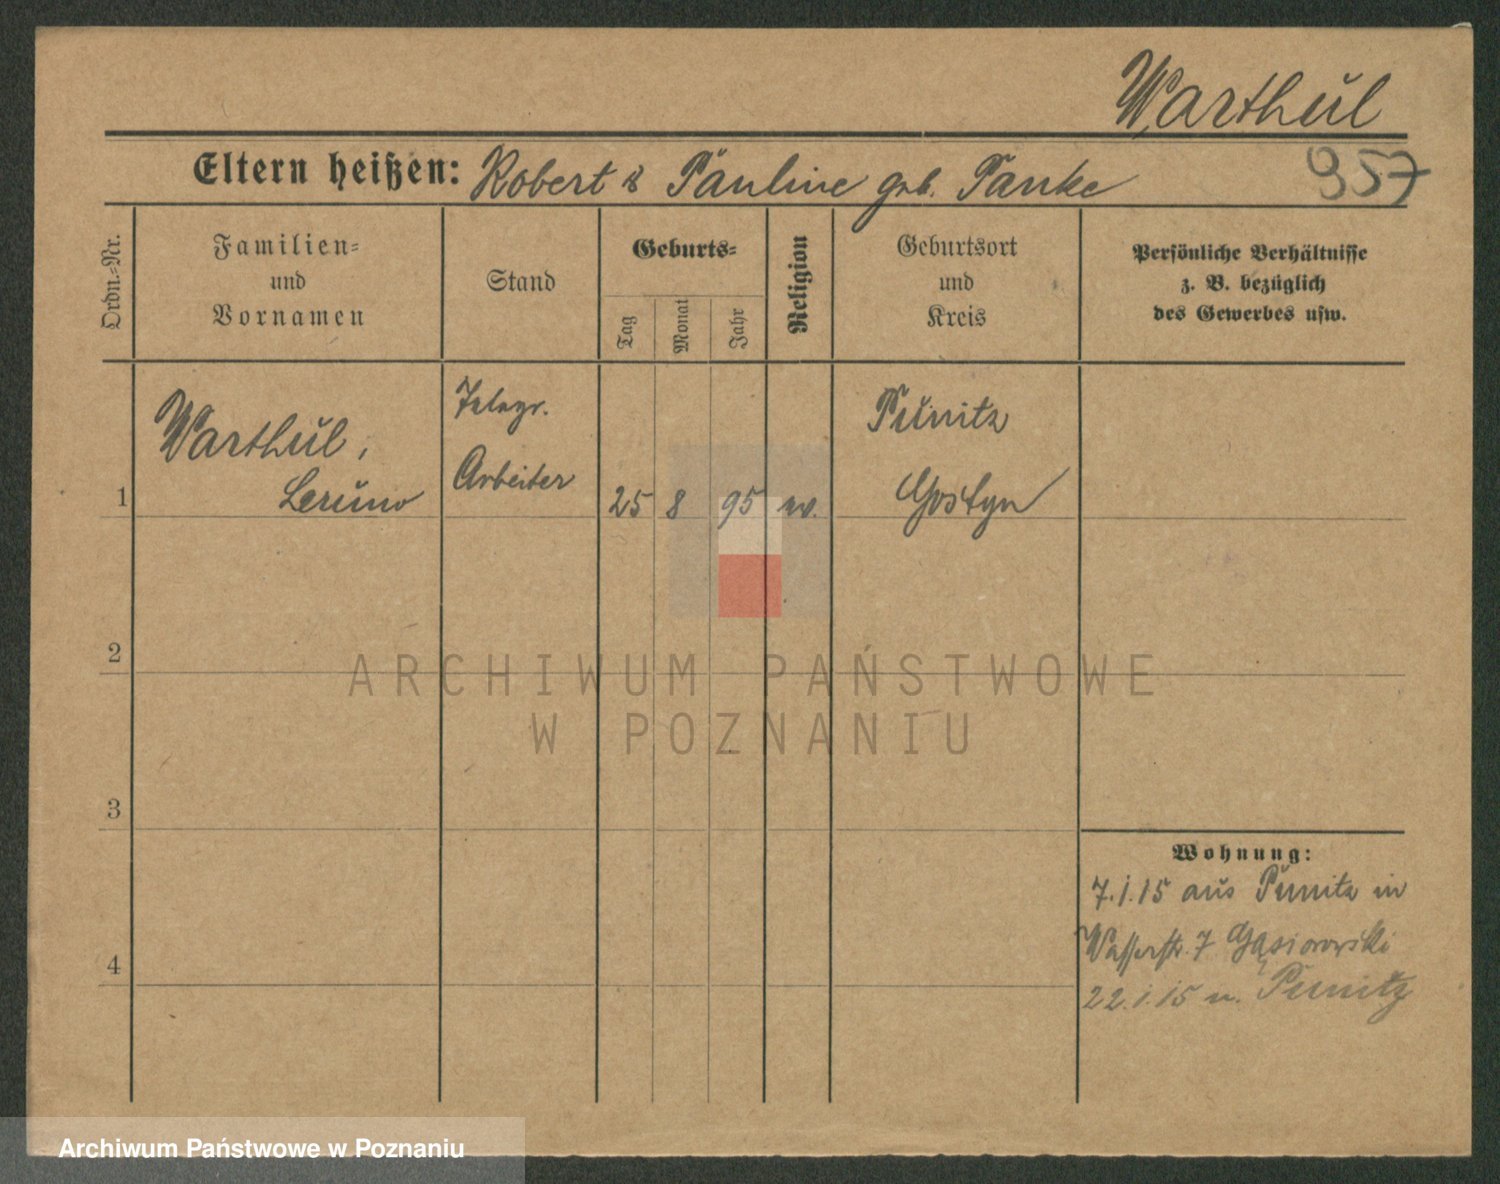 Warthul
Eltern heißen: Robert & Pauline geb. Panke
957
Ordn.=Nr.
Familien=
und
Vornamen
Stand
Geburts=
Tag
Monat
Jahr
Religion
Geburtsort
und
Kreis
Persönliche Verhältnisse
z. B. bezüglich
des Gewerbes usw.
1
Warthul,
Bruno
Telegr.
Arbeiter
25 8 95 ev.
Punitz
Gostyn
2
3
4
Wohnung:
7.1.15 aus Punitz in
Wasserstr. 7 Gąsiorowski
22.1.15 n. Punitz
ARCHIWUM PAŃSTWOWE
W POZNANIU
Archiwum Państwowe w Poznaniu